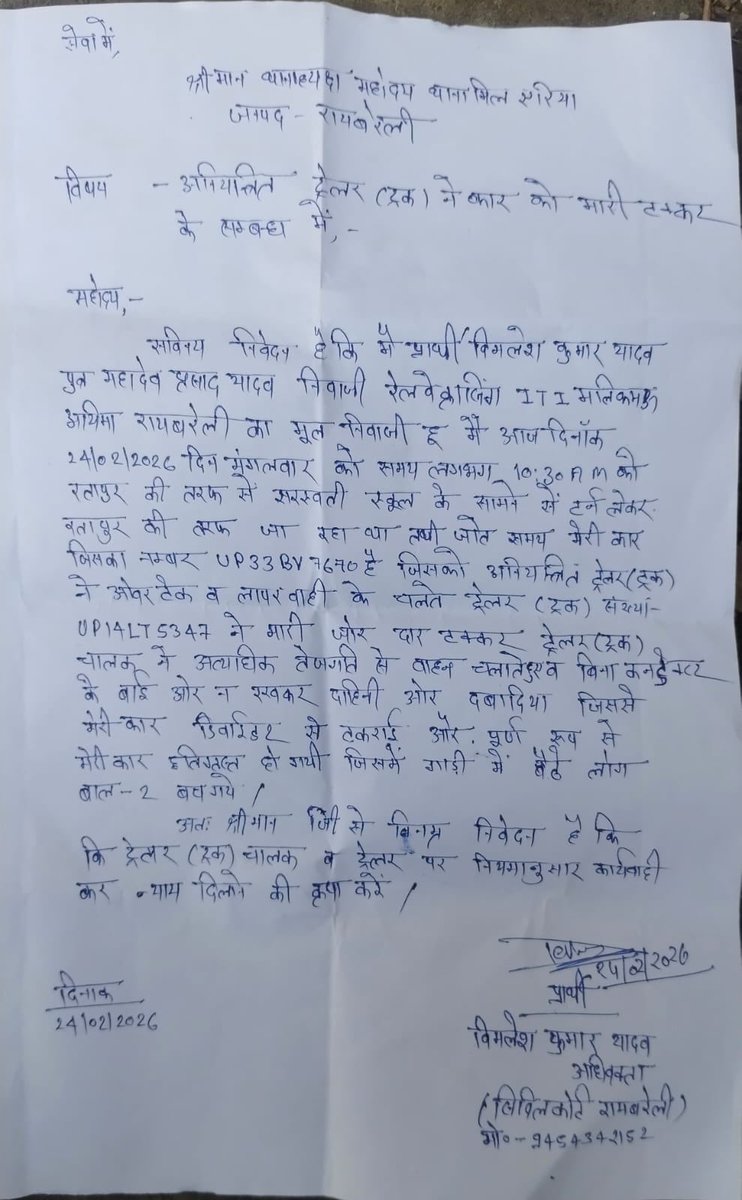 सेवा में,
श्रीमान थानाध्यक्ष महोदय थाना मिल एरिया
जनपद - रायबरेली
विषय - अनियन्त्रित ट्रेलर (ट्रक) ने कार को मारी टक्कर
के सम्बन्ध में,-
महोदय,-
सविनय निवेदन है कि मै प्रार्थी विमलेश कुमार यादव
पुत्र महादेव प्रसाद यादव निवासी रेलवे क्रासिंग ITI मलिकमऊ
आयिमा रायबरेली का मूल निवासी हू मैं आज दिनाँक
24/02/2026 दिन मंगलवार को समय लगभग 10:30 AM को
रतापुर की तरफ से सरस्वती स्कूल के सामने से टर्न लेकर
रतापुर की तरफ जा रहा था तभी जाते समय मेरी कार
जिसका नम्बर UP33BV7670 है जिसको अनियन्त्रित ट्रेलर (ट्रक)
ने ओवर टेक व लापरवाही के चलते ट्रेलर (ट्रक) संख्या-
UP14LT5347 ने मारी जोर दार टक्कर ट्रेलर (ट्रक)
चालक ने अत्यधिक तेजगति से वाहन चलाते हुए व बिना कन्डेक्टर
के बाई ओर न रखकर दाहिनी ओर दबा दिया जिससे
मेरी कार डिवाईडर से टकराई और पूर्ण रूप से
मेरी कार क्षतिग्रस्त हो गयी जिसमें गाड़ी में बैठे लोग
बाल-2 बच गये।
अतः श्रीमान जी से विनम्र निवेदन है कि
कि ट्रेलर (ट्रक) चालक व ट्रेलर पर नियमानुसार कार्यवाही
कर न्याय दिलाने की कृपा करें।
24/02/2026
प्रार्थी
दिनाक
24/02/2026
विमलेश कुमार यादव
अधिवक्ता
(सिविल कोर्ट रायबरेली)
मो०-9454342152